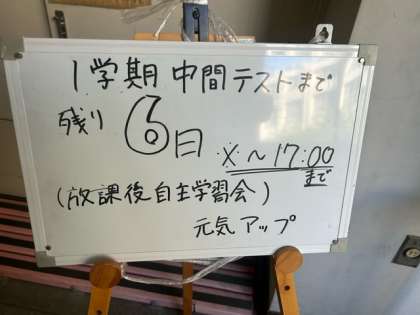 1学期 中間テストまで
残り 6日 ※〜17:00まで
(放課後自主学習会)
元気アップ